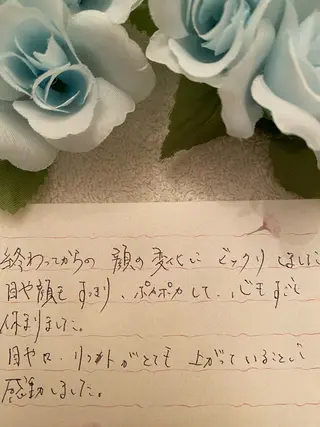 終わってからの 顔の変化に ビックリ しました
目や顔も すっきり、ポカポカして、心もすごく
休まりました。
目や口、リフトがとても 上がっていることに
感動しました。